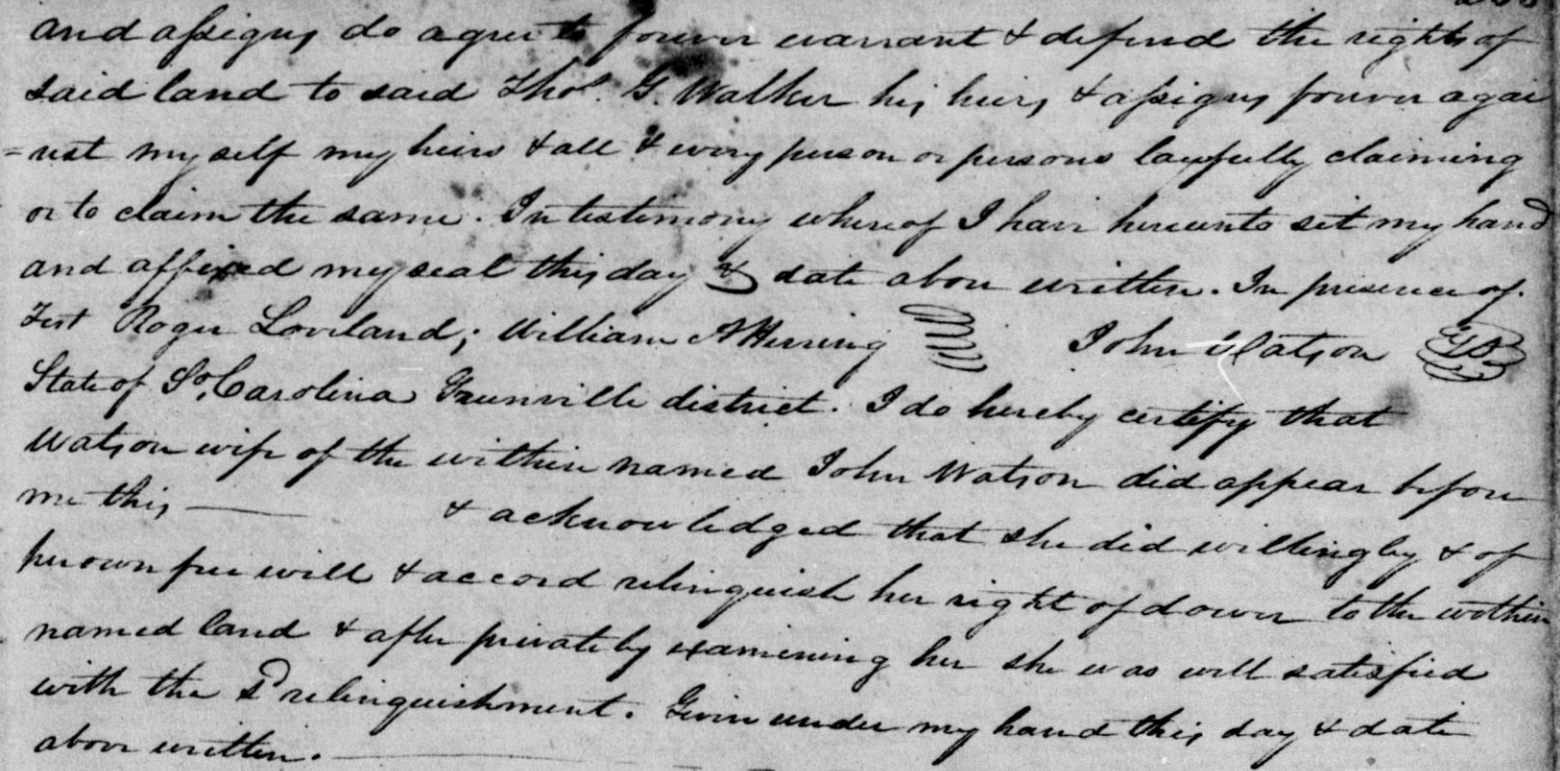 and assigns do agree to forever warrant & defend the rights of
said land to said Thos. G. Walker his heirs & assigns forever agai
=nst myself my heirs & all & every person or persons lawfully claiming
or to claim the same. In testimony whereof I have hereunto set my hand
and affixed my seal this day & date above written. In presence of
Test Roger Loveland; William A Herring John Watson
State of So. Carolina Greenville district. I do hereby certify that
Watson wife of the within named John Watson did appear before
me this — & acknowledged that she did willingly & of
her own free will & accord relinquish her right of dower to the within
named land & after privately examining her she was well satisfied
with the sd relinquishment. Given under my hand this day & date
above written. —